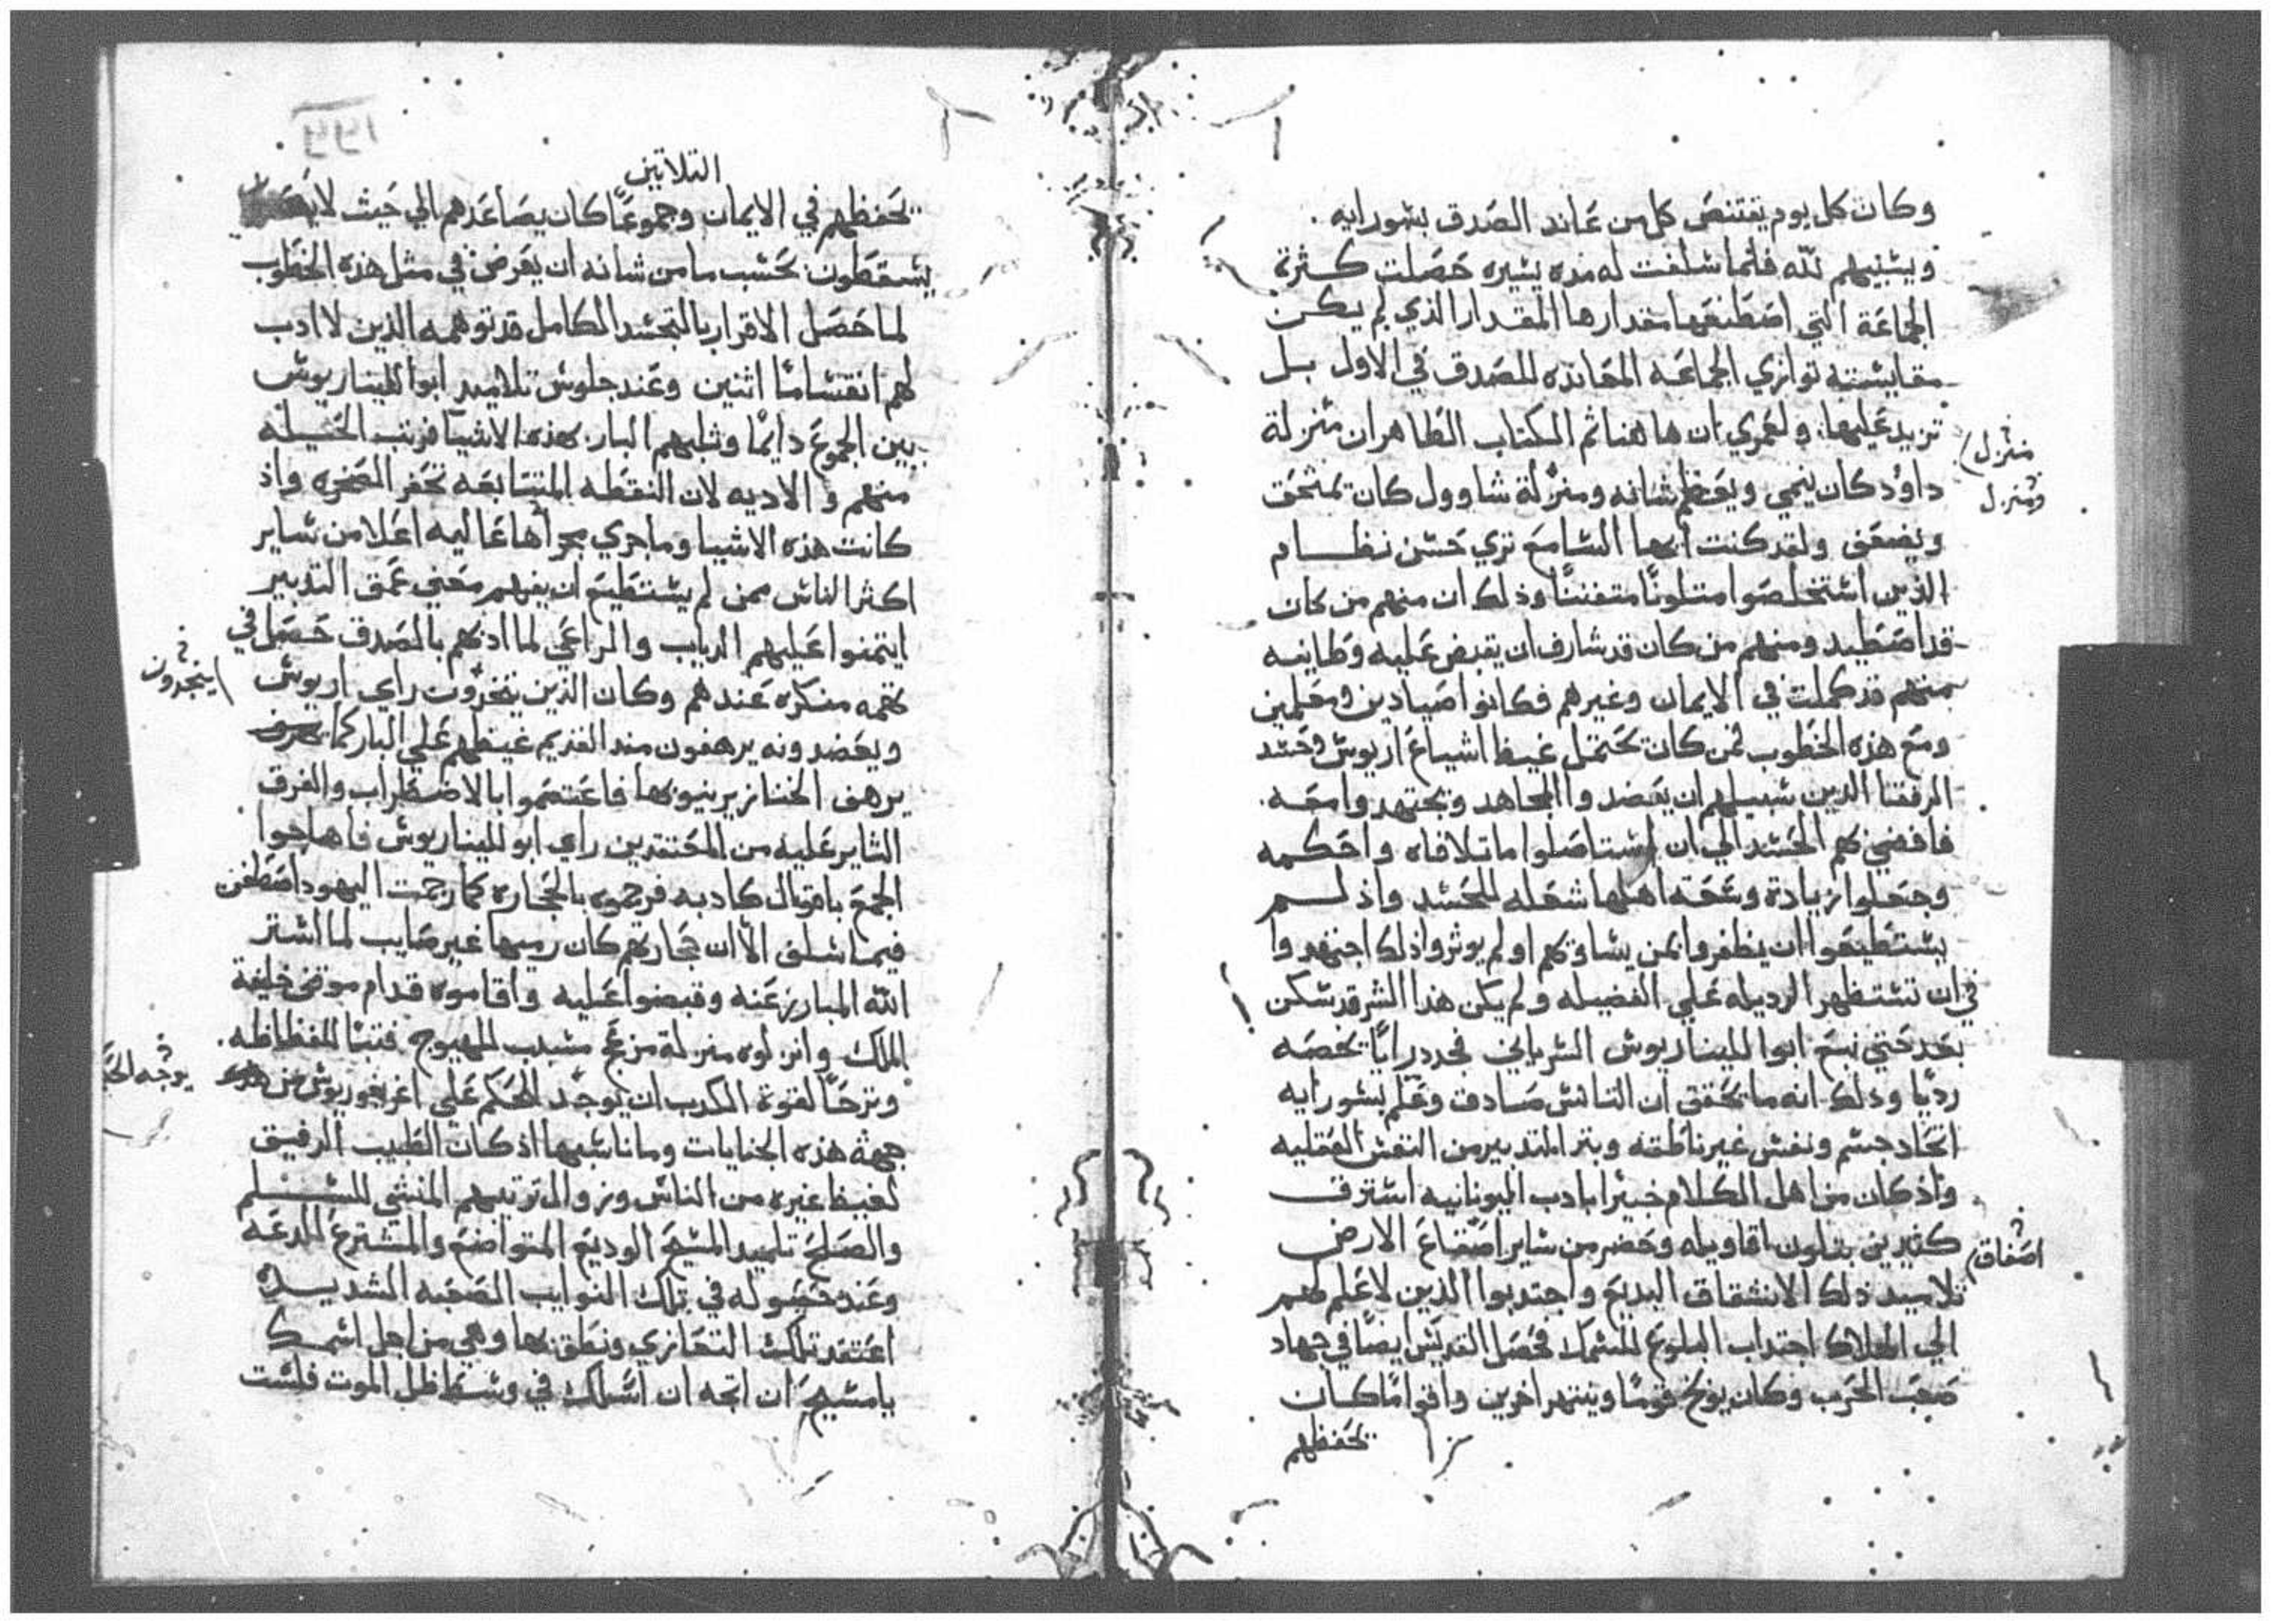 وكان كل يوم يقتنص كل من عاند الصدق بشورايه .
ويسبيهم لله فلما سلفت له مده يسيره حصلت كثرة
الجماعة التي اصطنعها مقدارها المقدار الذي لم يكن
مقايسته توازي الجماعه المعانده للصدق في الاول بل
تزيد عليها ولعمري ان هاهنا ثم الكتاب الطاهر ان منزلة
منزل
ومنزل
داوُد كان ينمي ويعظم شانه ومنزلة شاوول كان تمتحق
ويضعف ولقد كنت ايها السامع تري حسن نظام
الذين استخلصوا متلونًا متفننًا وذلك ان منهم من كان
قد اضطيد ومنهم من كان قد شارف ان يقبض عليه وطايفه
منهم قد كملت في الايمان وغيرهم فكانوا صيادين ومعلمين
ومع هذه الخطوب لمن كان تحتمل غيظ اشياع اريوس وحسد
الرفقا الذين سبيلهم ان يعضدوا المجاهد ويجتهدوا معه .
فافضي بهم الحسد الي ان استاصلوا ما تلافاه واحكمه
وجعلوا زيادة وعفة اهلها شعله للحسد واذ لم
يستطيعوا ان يظفروا بمن يساويهم او لم يوثروا ذلك اجتهدوا
في ان تستظهر الرديله علي الفضيله ولم يكن هذا الشر قد سكن
بعد حتي نبع ابوالليناريوس السرياني فجدد رايًا يخصه
رديًا وذلك انه ما تحقق ان التانس صادق وعلم بشو رايه
اتحاد جسم ونفس غير ناطقه وبتر التدبير من النفس العقليه
واذ كان من اهل الكلام خبيرا بادب اليونانيه استرق
كثيرين بتلون اقاويله وحضر من ساير اصقاع الارض
اصفاق
تلاميد ذلك الانشقاق البديع واجتدبوا الذين لا علم لهم
الي الهلاك اجتداب البلوع للسمك فحصل القديس ايضًا في جهاد
صعب الحرب وكان يوبخ قومًا وينتهر اخرين واقوامًا كان
تحفظهم
التلاتين
تحفظهم في الايمان وجموعًا كان يصاعدهم الي حيث لا
يسقطون بحسب ما من شانه ان يعرض في مثل هذه الخطوب
لما حصل الاقرار بالتجسد الكامل قد توهمه الذين لا ادب
لهم انقسامًا اثنين وعند جلوس تلاميد ابوالليناريوس
بين الجموع دايمًا وثلبهم البار بهذه الاشيا قربت الحيله
منهم والاديه لان النقطه المتتابعه تحفر الصخره واذ
كانت هذه الاشيا وما جري مجراها عاليه اعلا من ساير
اكثر الناس ممن لم يستطيع ان يفهم معني عمق التدبير
ايتمنوا عليهم الدياب والراعي لما ادبهم بالصدق حصل في
تهمه منكره عندهم وكان الذين يتخذون راي اريوس
ايتجدون
ويعضدونه يرهفون مند القديم غيظهم علي البار كما
يرهف الخنازير نيوبها فاعتصموا بالاضطراب والفرق
الثاير عليه من المعتقدين راي ابوالليناريوس فاهاجوا
الجمع باقوال كادبه فرجموه بالحجاره كما رجمت اليهود اصطفن
فيما سلف الا ان حجارتهم كان رميها غير صايب لما استر
الله المبارز عنه وقبضوا عليه واقاموه قدام موقف خليفة
الملك وانزلوه منزلة مزعج مسبب للهيوج فتبًا للفظاظه .
وترحًا لقوة الكرب ان يوجد الحكم علي اغريغوريوس من
يوجه الح
جهة هذه الجنايات وما ناسبها اذ كان الطبيب الرفيق
لغيظ غيره من الناس وزوال ترتيبهم المنشي للسلم
والصلح تلميد المسيح الوديع المتواضع والمشترع للدعه
وعند حصوله في تلك النوايب الصعبه الشديده
اعتقد تلك التعازي ونطق بها وهي من اجل اسمك
يا مسيح ان اتجه ان اسلك في وسط ظل الموت فلست